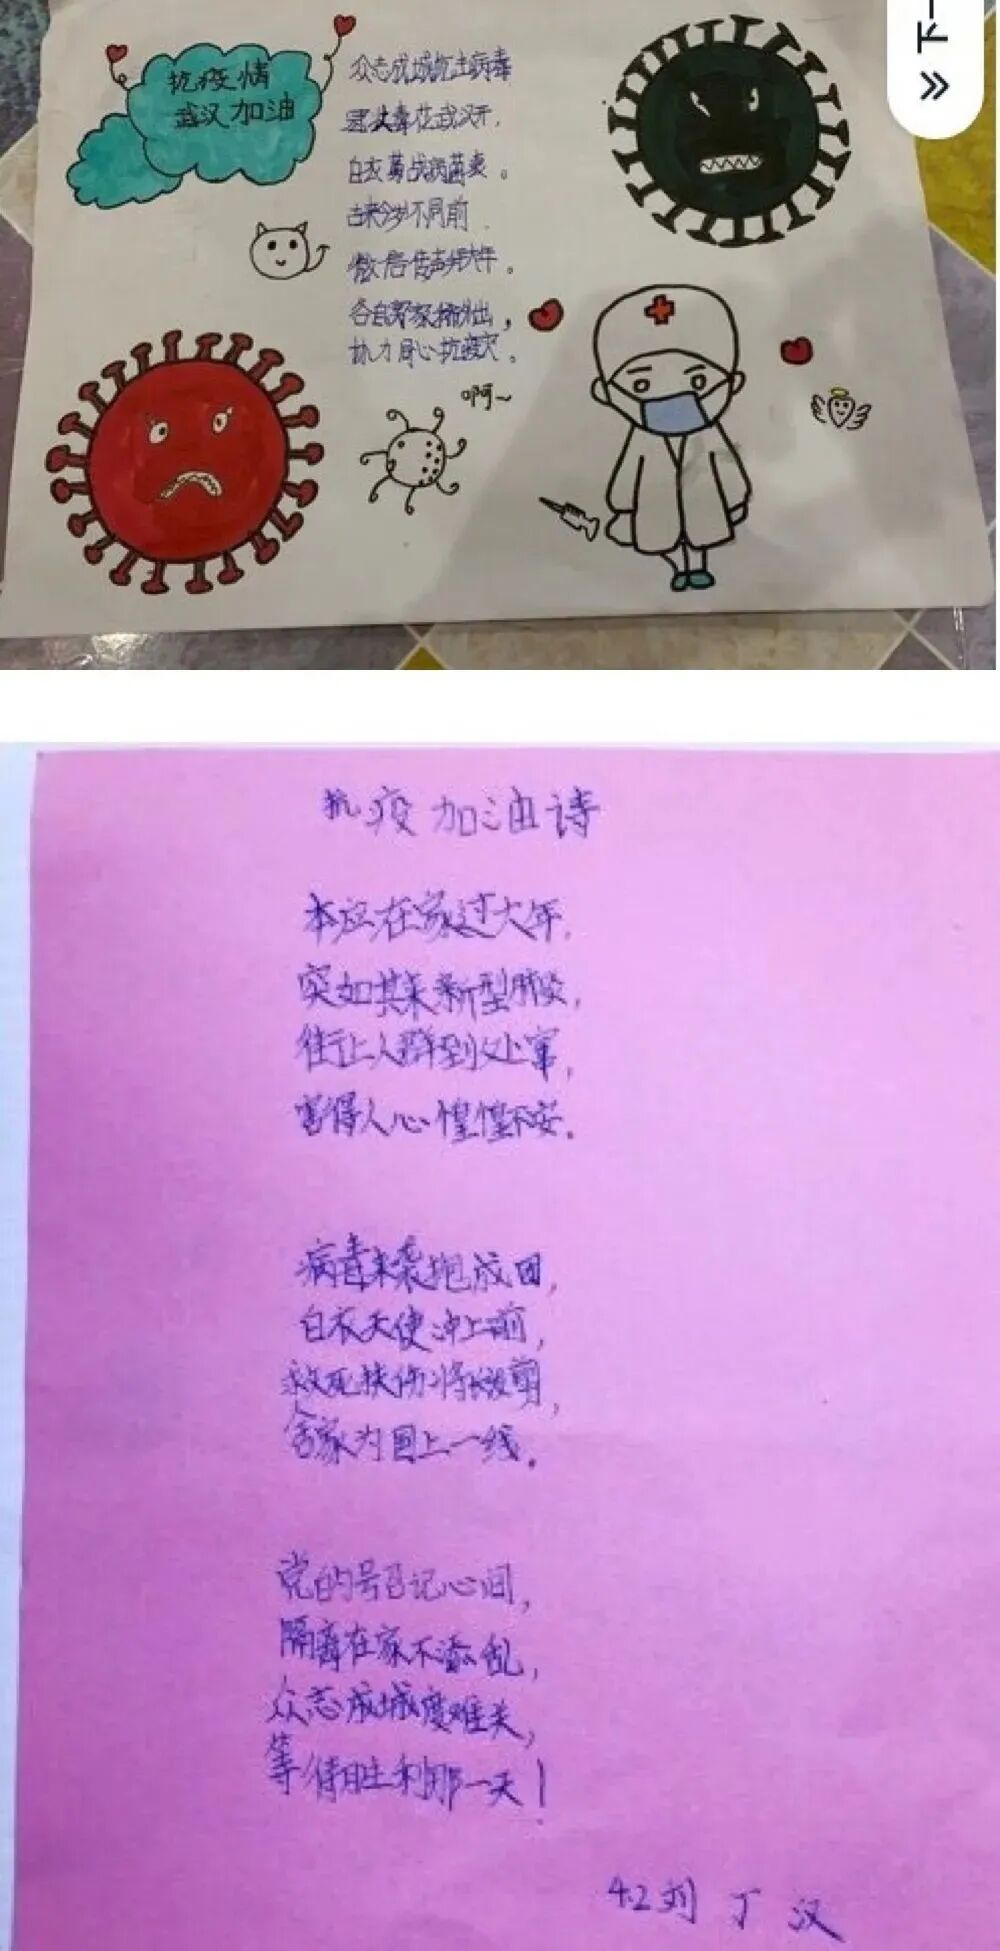 抗疫情
武汉加油
众志成城抗击病毒
武汉开,
白衣奋战病菌袭。
古来今岁不同前
微店传声拜大年。
各自居家稀外出,
协力同心抗疫灾。
啊~
下一
抗疫加油诗
本应在家过大年,
突如其来新型肺炎,
往让人群到处窜,
害得人心惶惶不安。
病毒来袭抱成团,
白衣天使冲上前,
救死扶伤将发剪,
舍家为国上一线。
党的号召记心间,
隔离在家不添乱,
众志成城度难关,
等待胜利那一天!
4.2刘丁汉